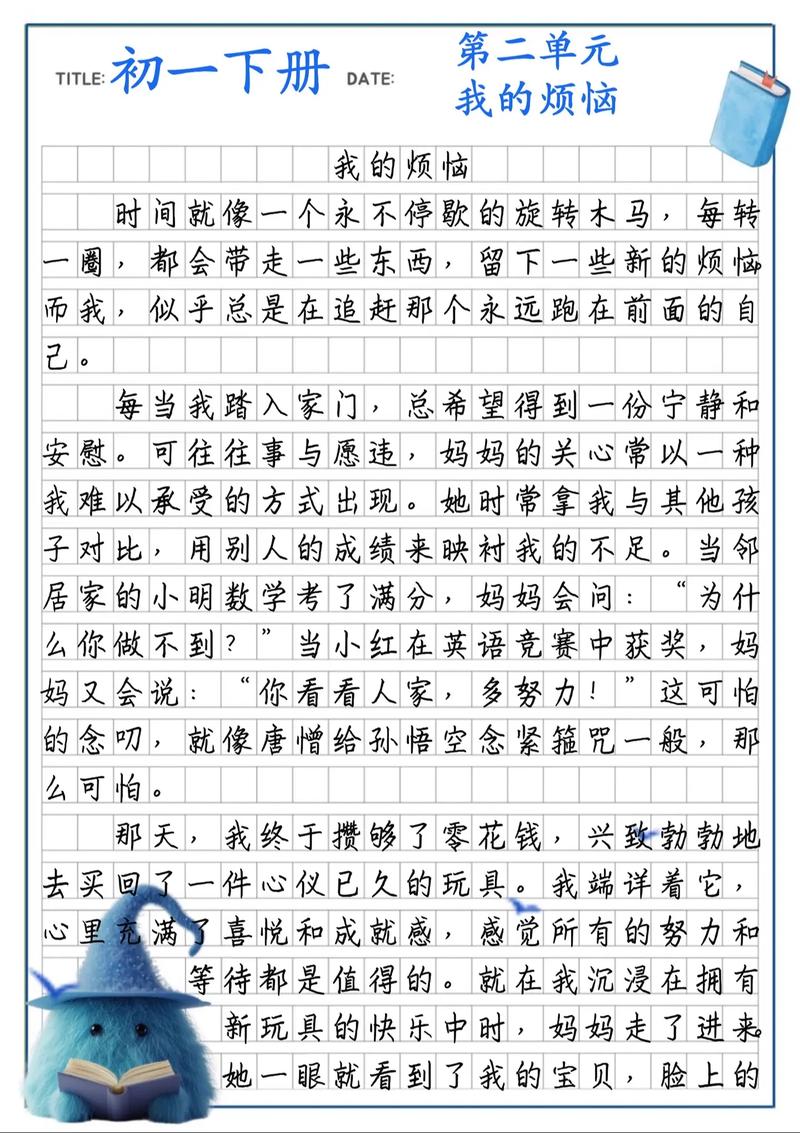 TITLE: 初一下册 DATE:
第二单元
我的烦恼
我的烦恼
时间就像一个永不停歇的旋转木马，每转
一圈，都会带走一些东西，留下一些新的烦恼。
而我，似乎总是在追赶那个永远跑在前面的自
己。
每当我踏入家门，总希望得到一份宁静和
安慰。可往往事与愿违，妈妈的关心常以一种
我难以承受的方式出现。她时常拿我与其他孩
子对比，用别人的成绩来映衬我的不足。当邻
居家的小明数学考了满分，妈妈会问：“为什
么你做不到？”当小红在英语竞赛中获奖，妈
妈又会说：“你看看人家，多努力！”这可怕
的念叨，就像唐憎给孙悟空念紧箍咒一般，那
么可怕。
那天，我终于攒够了零花钱，兴致勃勃地
去买回了一件心仪已久的玩具。我端详着它，
心里充满了喜悦和成就感，感觉所有的努力和
等待都是值得的。就在我沉浸在拥有
新玩具的快乐中时，妈妈走了进来。
她一眼就看到了我的宝贝，脸上的